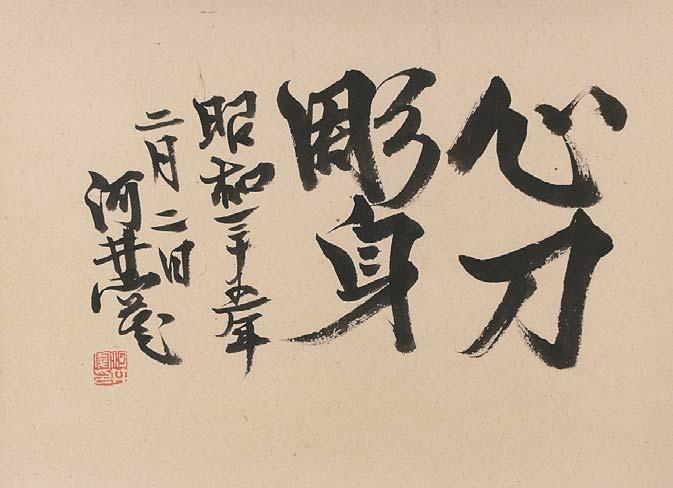 心刀
彫身
昭和三十五年
二月二日
河井